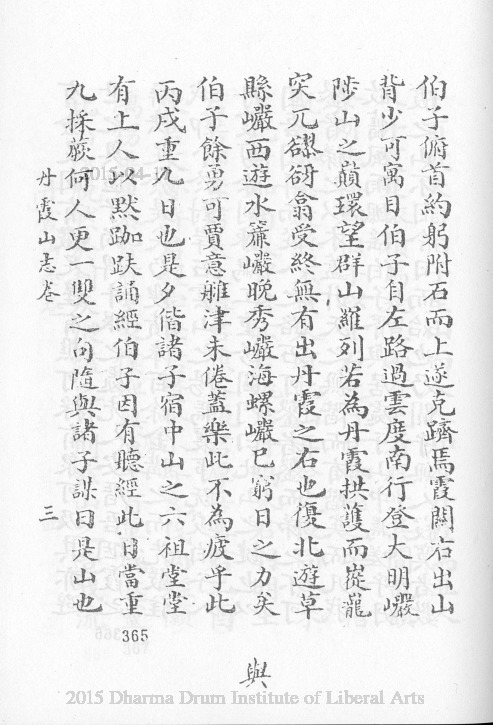 伯子俯首約躬附石而上遂克躋焉霞關右出山
背少可寓目伯子自左路過雲度南行登大明巖
陟山之巔環望群山羅列若為丹霞拱護而嵸巃
突兀谺翕受終無有出丹霞之右也復北遊草
縣巖西遊水簾巖晚秀巖海螺巖已窮日之力矣
伯子餘勇可賈意雖津未倦蓋樂此不為疲乎此
丙戌重九日也是夕偕諸子宿中山之六祖堂堂
有上人以默跏趺誦經伯子因有聽經此日當重
九採蕨何人更一雙之句隨與諸子謀曰是山也
丹霞山志卷 三
365
與
2015 Dharma Drum Institute of Liberal Arts